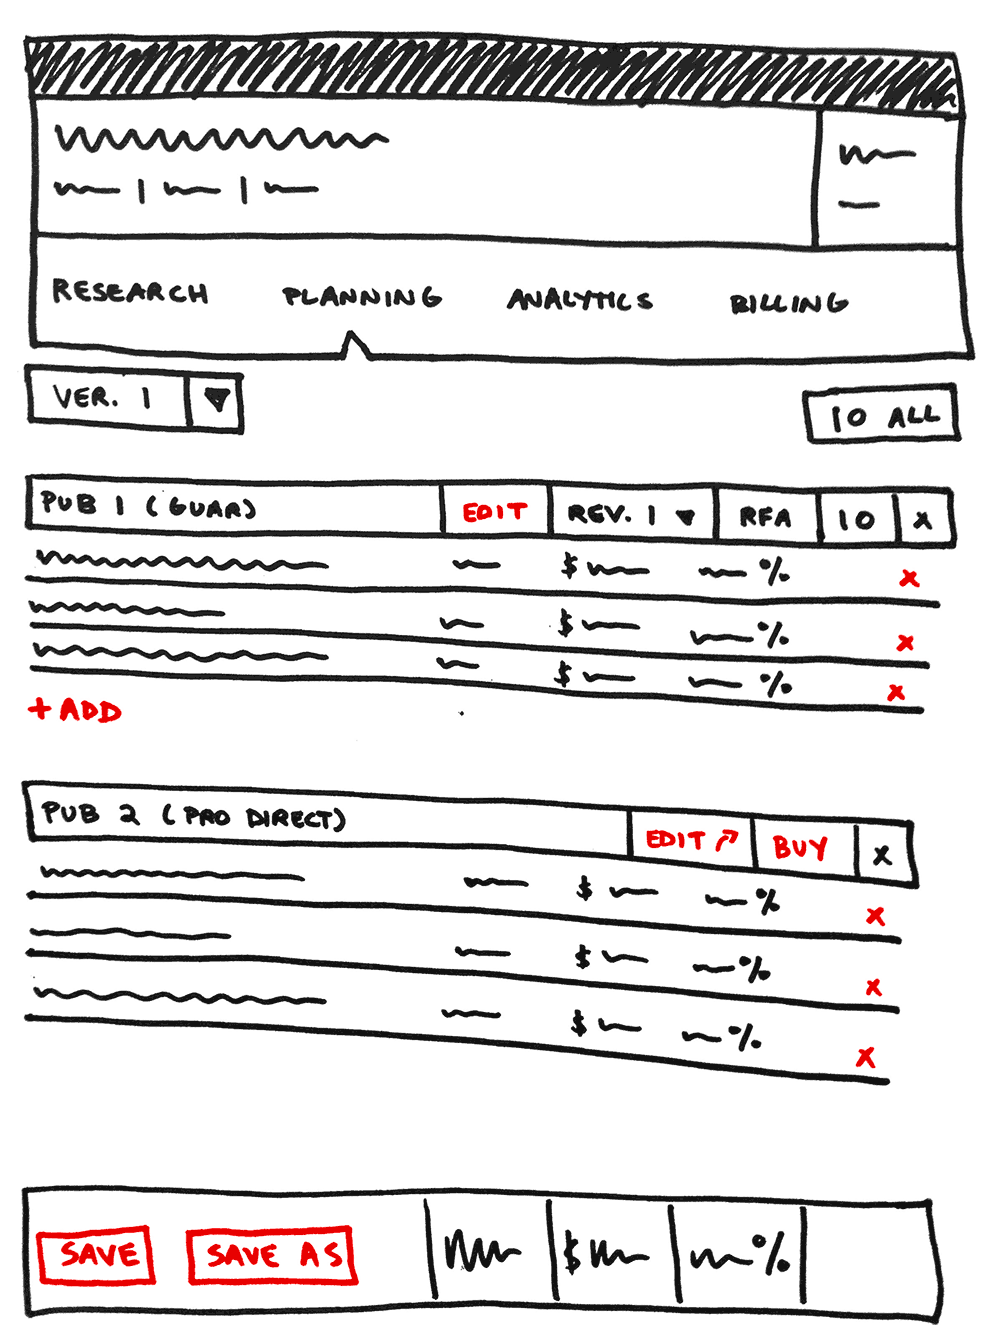 RESEARCH PLANNING ANALYTICS BILLING
VER. 1 ▼
IO ALL
PUB 1 (GUAR) EDIT REV. 1 ▼ RFA IO X
$ % X
$ % X
$ % X
+ ADD
PUB 2 (PRO DIRECT) EDIT ↗ BUY X
$ % X
$ % X
$ % X
SAVE SAVE AS $ %